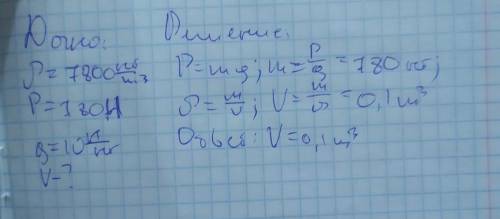 Дано:
ρ = 7800 кг/м3
P = 780Н
g = 10 Н/кг
V - ?
Решение:
P = mg; m = P/g = 780 кг;
ρ = m/v; V = m/ρ = 0,1 м³
Ответ: V = 0,1 м³